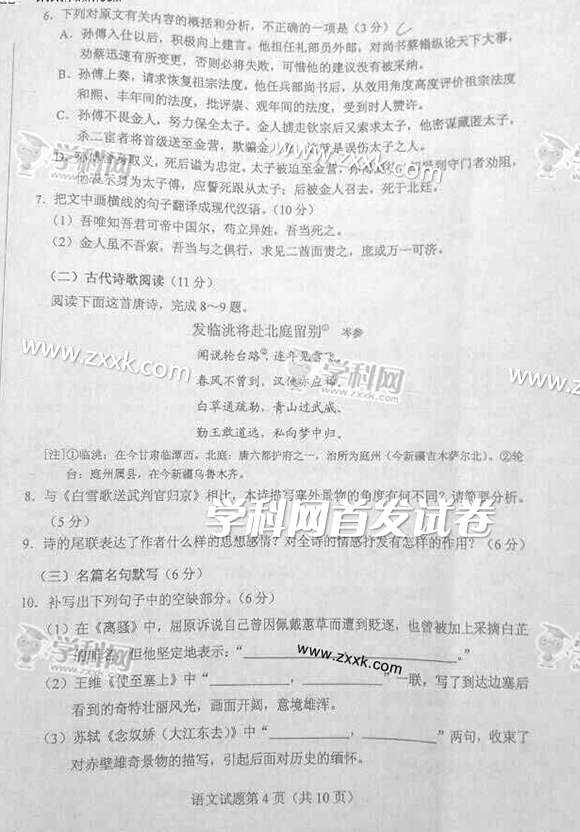 6. 下列对原文有关内容的概括和分析，不正确的一项是（3分）
A．孙傅入仕以后，积极向上建言。他担任礼部员外郎，对尚书蔡翛纵论天下大事，
劝蔡迅速有所变更，否则必将失败，可惜他的建议没有被采纳。
B．孙傅上奏，请求恢复祖宗法度。他任兵部尚书后，从效用角度高度评价祖宗法度
和熙、丰年间的法度，批评崇、观年间的法度，受到时人赞许。
C．孙傅不畏金人，努力保全太子。金人掳走钦宗后又索求太子，他密谋藏匿太子，
杀二宦者将首级送至金营，欺骗金人 是误伤太子之人。
D．孙傅舍身取义，死后谥为忠定。太子被迫至金营， 受到守门者劝阻，
他表示身为太子傅，应誓死跟从太子；后被金人召去，死于北廷。
7. 把文中画横线的句子翻译成现代汉语。（10分）
（1）吾唯知吾君可帝中国尔，苟立异姓，吾当死之。
（2）金人虽不吾索，吾当与之俱行，求见二酋面责之，庶或万一可济。
（二）古代诗歌阅读（11分）
阅读下面这首唐诗，完成8～9题。
发临洮将赴北庭留别① 岑参
闻说轮台路②，连年见雪飞。
春风不曾到，汉使亦应稀。
白草通疏勒，青山过武威。
勤王敢道远，私向梦中归。
[注]①临洮：在今甘肃临潭西。北庭：唐六都护府之一，治所为庭州（今新疆吉木萨尔北）。②轮
台：庭州属县，在今新疆乌鲁木齐。
8. 与《白雪歌送武判官归京》相比，本诗描写塞外景物的角度有何不同？请简要分析。
（5分）
9. 诗的尾联表达了作者什么样的思想感情？对全诗的情感抒发有怎样的作用？（6分）
（三）名篇名句默写（6分）
10. 补写出下列句子中的空缺部分。（6分）
（1）在《离骚》中，屈原诉说自己曾因佩戴蕙草而遭到贬逐，也曾被加上采摘白芷
的罪名，但他坚定地表示：“____________，____________。”
（2）王维《使至塞上》中“____________，____________”一联，写了到达边塞后
看到的奇特壮丽风光，画面开阔，意境雄浑。
（3）苏轼《念奴娇（大江东去）》中“____________，____________”两句，收束了
对赤壁雄奇景物的描写，引起后面对历史的缅怀。
语文试题第4页（共10页）
学科网
www.zxxk.com
学科网
www.zxxk.com
学科网
zxxk.com
www.zxxk.com
学科网首发试卷
学科网
www.zxxk.com